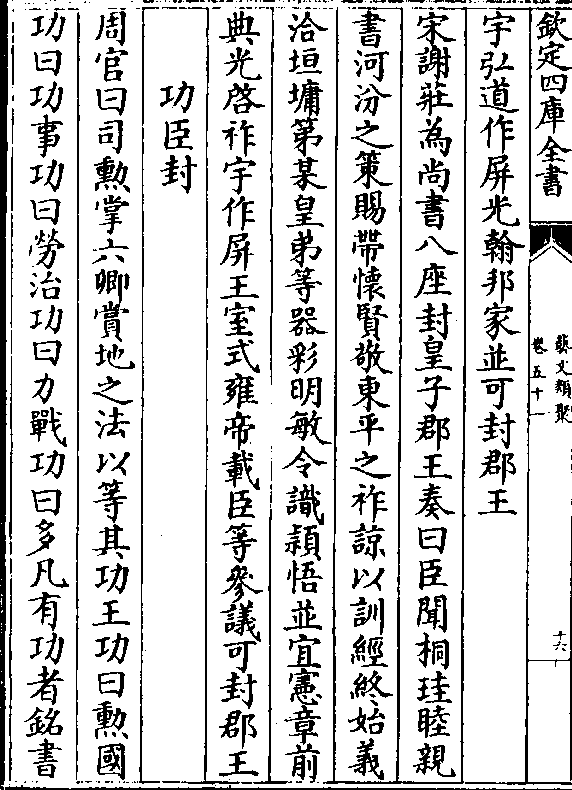 欽定四庫全書
藝文類聚
卷五十一
十六
宇弘道作屏光翰邦家並可封郡王
宋謝莊為尚書八座封皇子郡王奏曰臣聞桐珪睦親
書河汾之策賜帶懷賢敬東平之祚諒以訓經終始義
洽垣墉第某皇弟等器彩明敏令識頴悟並宜憲章前
典光啓祚宇作屏王室式雍帝載臣等參議可封郡王
功臣封
周官曰司勲掌六卿賞地之法以等其功王功曰勲國
功曰功事功曰勞治功曰力戰功曰多凡有功者銘書